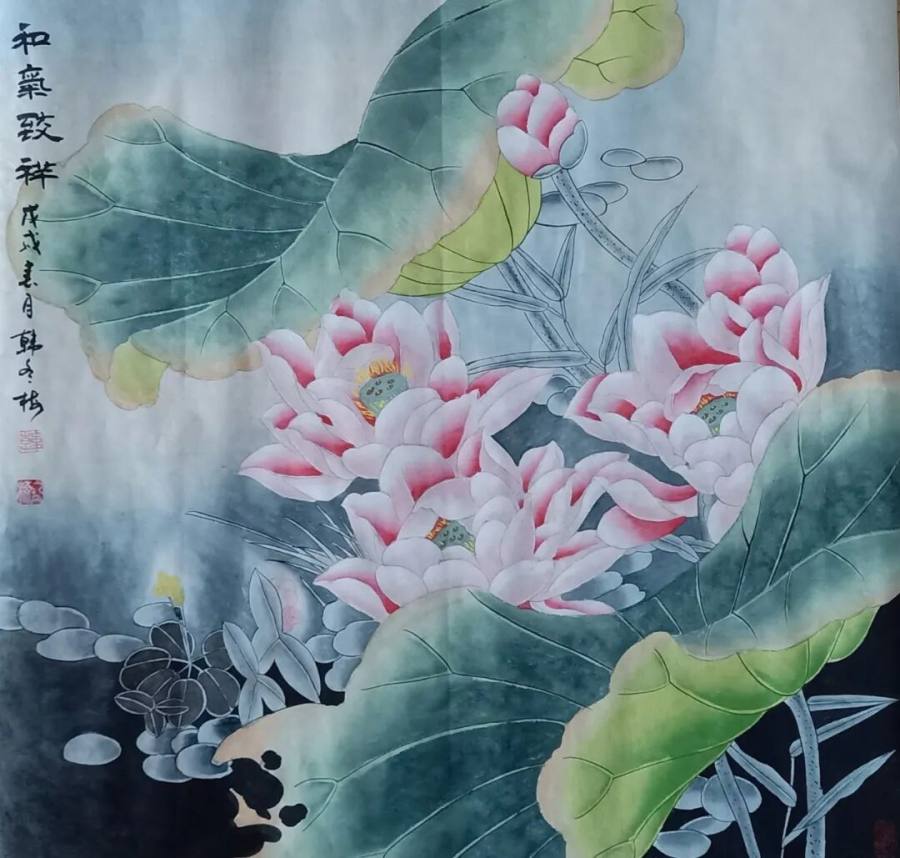 和氣致祥
戊戌春月韩冬梅